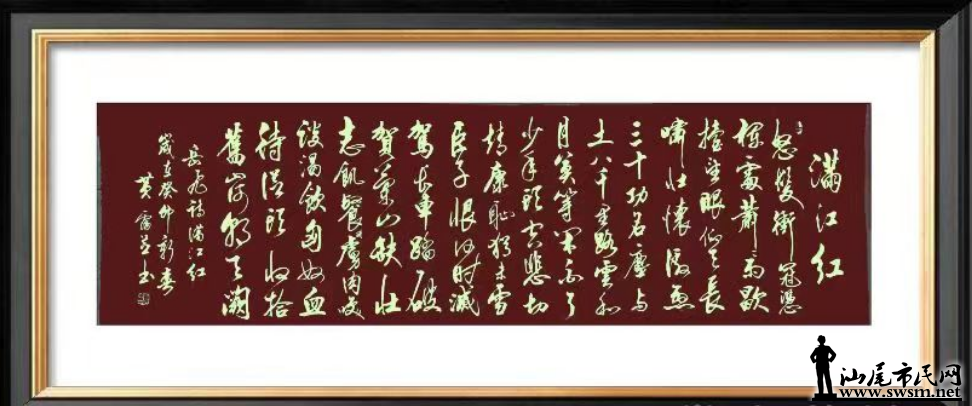 滿江紅
怒髮衝冠憑
欄處蕭雨歇
擡望眼仰天長
嘯壯懷激烈
三十功名塵與
土八千里路雲和
月莫等閒白了
少年頭空悲切
靖康恥猶未雪
臣子恨何時滅
駕長車踏破
賀蘭山缺壯
志飢餐虜肉笑
談渴飲匈奴血
待從頭收拾
舊山河朝天闕
岳飛詩滿江紅
歲在癸卯新春
黃
汕尾市民网
www.swsm.net